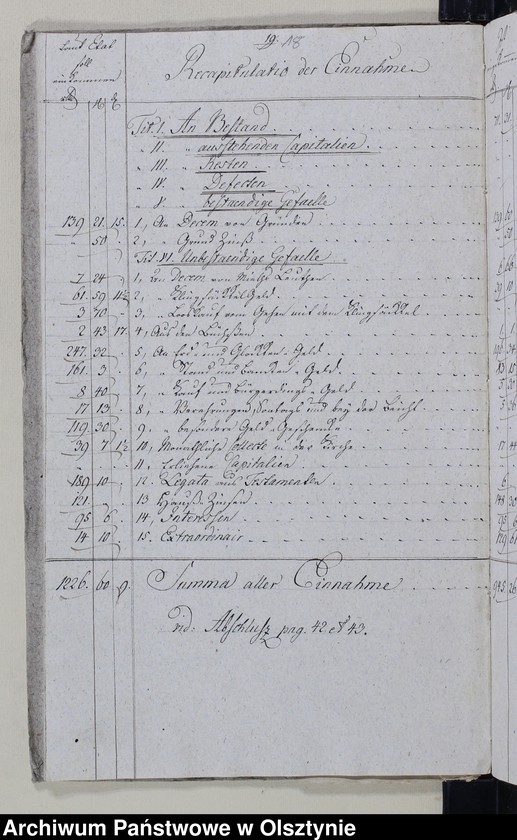 19 18
Laut Etat
soll
einkommen
Recapitulatio der Einnahme
Tit. I. An Bestand
" II. " ausstehenden Capitalien
" III. " Resten
" IV. " Defecten
" V. " bestaendige Gefaelle
139 21. 15. 1, An Decem von Gründen
" 50 . 2, " Grund Zinß
Tit. VI. Unbestaendige Gefaelle
7 24 1, An Decem von Mieths Leuthen
61. 59 11½ 2, " Klingsäckel Geld
3 70 3, " Loskauf vom Gehen mit dem Klingsäckel
2 43 17. 4, Aus den Büchßen
247. 32 5, An Erde und Glocken-Geld
161. 3 6, " Stand und Bancken-Geld
8 40 7, " Tauf und Geld
17 13 8, " Verehrungen Sontags und bey der Beicht
119 30 9. " besondere Geld-Geschencke
39 7 1½ 10, Monathliche Collecte in der Kirche
11. Erliehene Capitalien
189 10 12. Legata aus Testamenten
121. 13 Hauß-Zinsen
95 6 14, Interessen
14 10 15. Extraordinair
1226. 60 9. Summa aller Einnahme
vid: Abschlusz pag. 42. et 43.
Archiwum Państwowe w Olsztynie